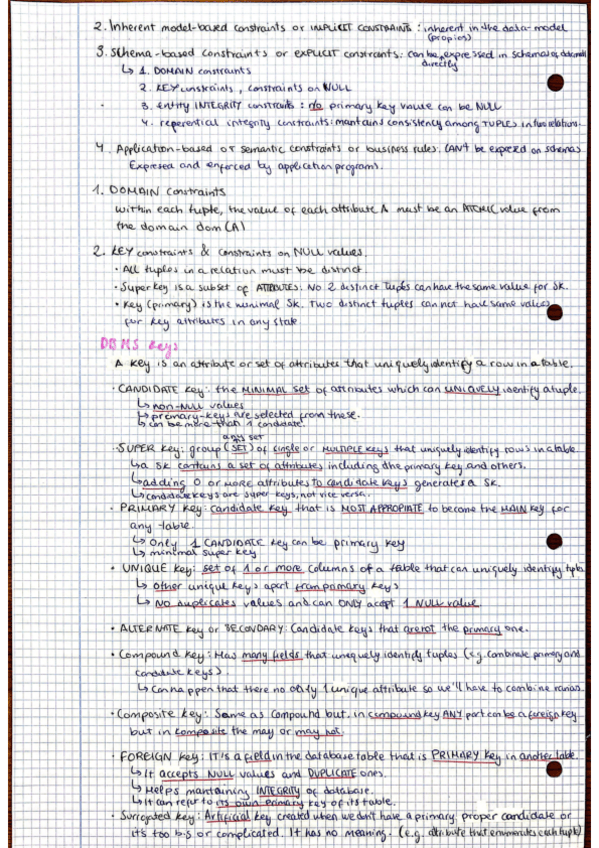 2. Inherent model-based constraints or IMPLICIT CONSTRAINTS: inherent in the data-model
(propios)
3. Schema-based constraints or EXPLICIT constraints: can be expressed in schemas of data model
directly
↳ 1. DOMAIN constraints
2. KEY constraints, constraints on NULL
3. Entity INTEGRITY constraints: no primary key value can be NULL
4. referential integrity constraints: mantains consistency among TUPLES in two relations.
4. Application-based or semantic constraints or business rules. CAN'T be expresed on schemas
Expresed and enforced by application programs.
1. DOMAIN constraints
within each tuple, the value of each attribute A must be an ATOMIC value from
the domain dom(A)
2. KEY constraints & constraints on NULL values.
· All tuples in a relation must be distinct.
· Superkey is a subset of ATTRIBUTES. No 2 distinct tuples can have the same value for SK.
· Key (primary) is the minimal SK. Two distinct tuples can not have same values
for key attributes in any state
DBMS keys
A key is an attribute or set of attributes that uniquely identify a row in a table.
· CANDIDATE key: the MINIMAL set of attributes which can UNIQUELY identify a tuple.
↳ non-NULL values
↳ primary-keys are selected from these.
↳ can be more than 1 candidate.
any set
· SUPER key: group (SET) of single or MULTIPLE keys that uniquely identify rows in a table
↳ a SK contains a set of attributes including the primary key and others.
↳ adding 0 or more attributes to candidate keys generates a SK.
↳ candidate keys are super keys, not vice versa.
· PRIMARY key: candidate key that is MOST APPROPIATE to become the MAIN key for
any table.
↳ Only 1 CANDIDATE key can be primary key
↳ minimal super key
· UNIQUE key: set of 1 or more columns of a table that can uniquely identify tuples
↳ Other unique keys apart from primary keys
↳ NO duplicates values and can ONLY acept 1 NULL value
· ALTERNATE key or SECONDARY: Candidate keys that are not the primary one.
· Compound key: Has many fields that uniquely identify tuples (e.g. combinate primary and
candidate keys).
↳ Can happen that there no only 1 unique attribute so we'll have to combine
· Composite key: Same as compound but, in compound key ANY part can be a foreign key
but in composite the may or may not.
· FOREIGN key: IT is a field in the database table that is PRIMARY key in another table.
↳ It accepts NULL values and DUPLICATE ones.
↳ Helps maintaining INTEGRITY of database.
↳ It can refer to its own primary key of its table.
· Surrogated key: Artificial key created when we don't have a primary, proper candidate or
it's too big or complicated. It has no meaning. (e.g. attribute that enumerates each tuple)